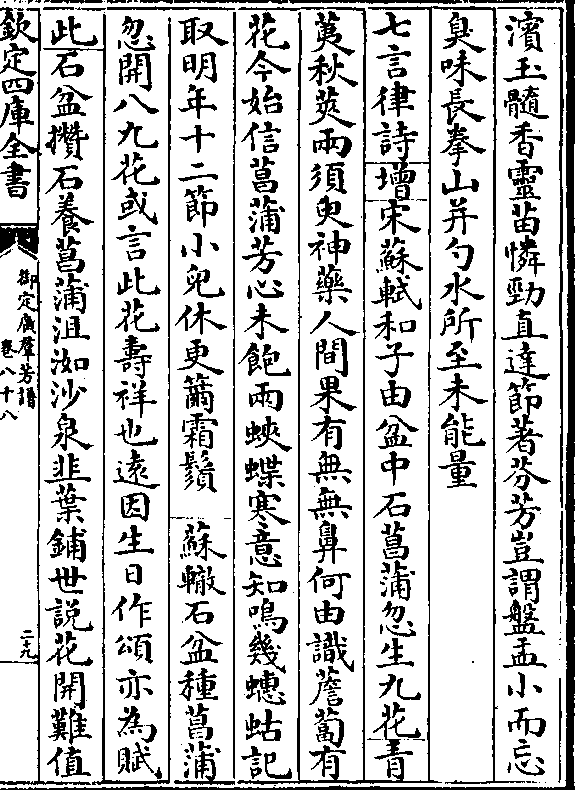 濱玉髓香靈苗憐勁直達節著芬芳豈謂盤盂小而忘
臭味長拳山并勺水所至未能量
七言律詩增宋蘇軾和子由盆中石菖蒲忽生九花青
荑秋莢兩須臾神藥人間果有無無鼻何由識薝蔔有
花今始信菖蒲芳心未飽兩蛺蝶寒意知鳴幾蟪蛄記
取明年十二節小兒休更籋霜鬚 蘇轍石盆種菖蒲
忽開八九花或言此花壽祥也遠因生日作頌亦為賦
此石盆攢石養菖蒲沮洳沙泉韭葉鋪世說花開難值
欽定四庫全書
御定廣羣芳譜
卷八十八
二十九